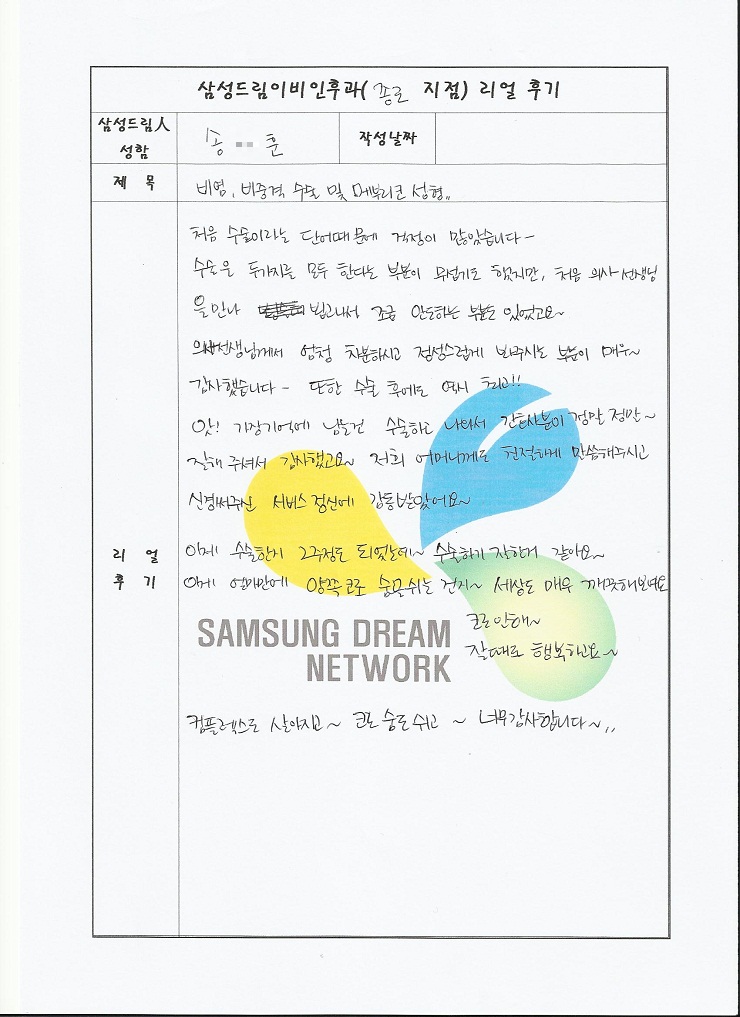 삼성드림이비인후과( 종로 지점) 리얼 후기
삼성드림人 성함
송 훈
작성날짜
제 목
비염, 비중격 수술 및 매부리코 성형..
리 얼 후 기
처음 수술이라는 단어때문에 걱정이 많았습니다~
수술을 두가지를 모두 한다는 부분이 무섭기도 했지만, 처음 의사 선생님
을 만나 뵙고나서 조금 안도하는 부분도 있었고요~
의사선생님께서 엄청 차분하시고 정성스럽게 봐주시는 부분이 매우~
감사했습니다~ 또한 수술 후에도 역시 최고!!
앗! 가장기억에 남는건 수술하고 나와서 간호사분이 정말 정말~
잘해 주셔서 감사했고요~ 저희 어머니께도 친절하게 말씀해주시고
신경써주신 서비스 정신에 감동받았어요~
이제 수술한지 2주정도 되었는데~ 수술하기 잘한거 같아요~
이게 얼마만에 양쪽코로 숨을쉬는 건지~ 세상도 매우 깨끗해보여요
코로인해~
잘때도 행복하고요~
SAMSUNG DREAM
NETWORK
컴플렉스도 사라지고~ 코도 숨도쉬고 ~ 너무감사합니다~..